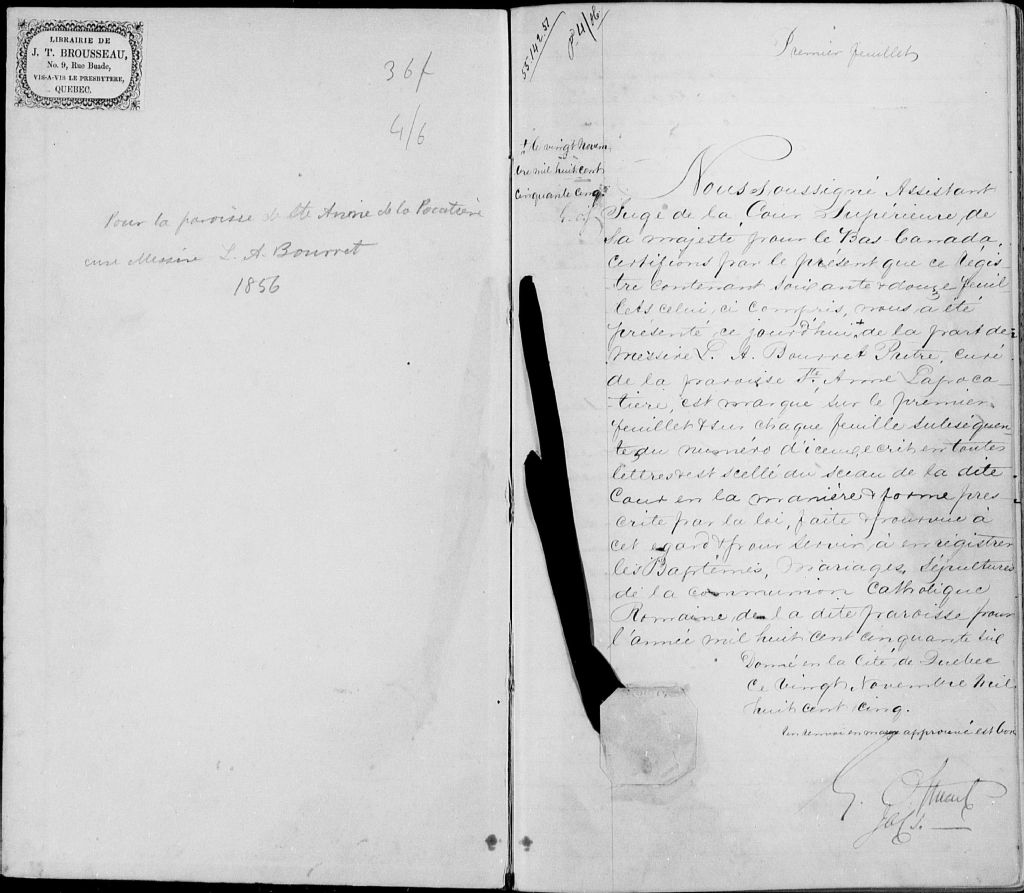 LIBRAIRIE DE
J. T. BROUSSEAU,
No. 9, Rue Buade,
VIS-A-VIS LE PRESBYTERE,
QUEBEC.
36f
4/6
Pour la paroisse de Ste Anne de la Pocatière
cure Messire L. A. Bourret
1856
55-142.51
p. 4/56
Premier feuillet
+ le vingt Novem
bre mil huit cent
cinquante cinq
Nous Soussigné Assistant
Juge de la Cour Supérieure de
Sa majesté pour le Bas-Canada,
certifions par le présent que ce régis-
tre contenant soixante & douze feuil-
lets celui ci compris, nous a été
présenté ce jourd'hui + de la part de
Messire L. A. Bourret Prêtre, curé
de la paroisse Ste Anne Lapoca-
tière, est marqué sur le premier
feuillet & sur chaque feuille subséquen-
te du numéro d'iceux écrit en toutes
lettres & est scellé du sceau de la dite
Cour en la manière & forme pres-
crite par la loi, faite & pourvue à
cet egard & pour servir à enrégistrer
les Baptêmes, Mariages, Sépultures
de la communion Catholique
Romaine de la dite paroisse pour
l'année mil huit cent cinquante six
Donné en la Cité de Quebec
ce vingt Novembre Mil
huit cent cinq.
Un renvoi en marge approuvé est bon
G. O. Stuart